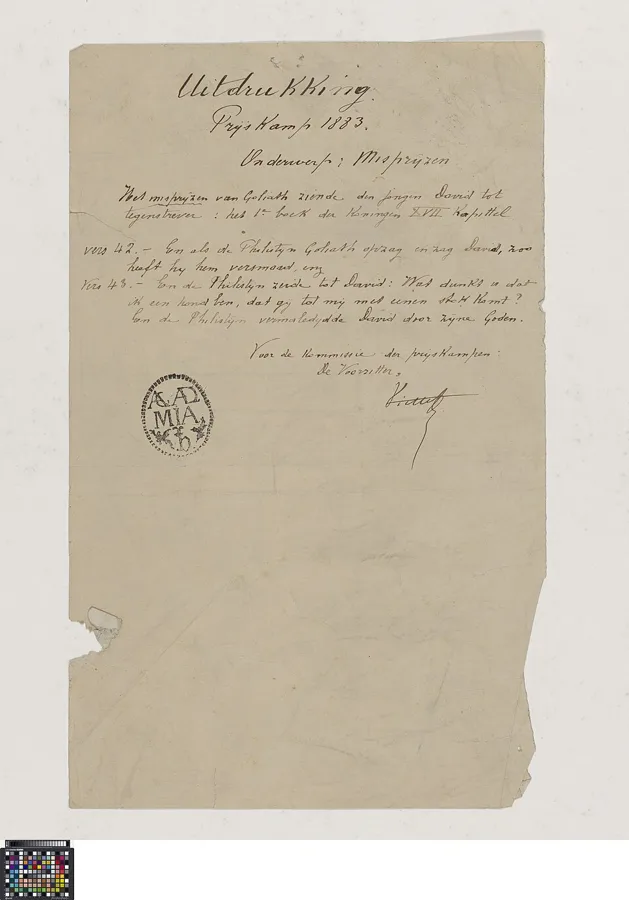 Uitdrukking.
Pryskamp 1883.
Onderwerp: Misprijzen
Het misprijzen van Goliath ziende den jongen David tot
tegenstrever: het 1e boek der Koningen XVII Kapittel
vers 42.- En als de Philistyn Goliath opzag en zag David, zoo
heeft hy hem versmaad, en
Vers 43.- En de Philistyn zeide tot David: Wat dunkt u dat
ik een hond ben, dat gy tot my met eenen stok komt?
En de Philistyn vermaledydde David door zyne Goden.
Voor de Kommissie der pryskampen:
De Voorzitter,
ACAD
MIA